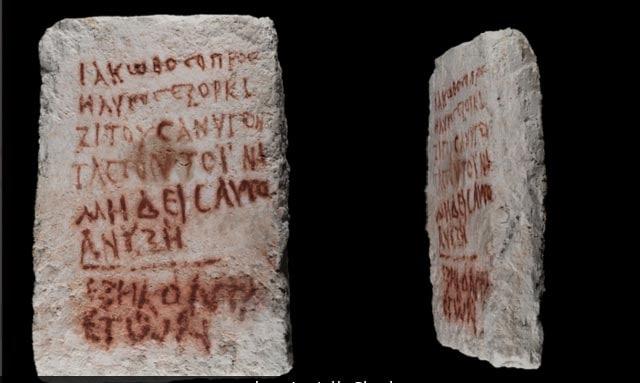 ΙΑΚΩΒΟCΟΠΡΟC
ΗΛΥΤΟCΕΞΟΡΚΙ
ΖΙΤΟΥCΑΝΥΓΟΝ
ΤΑCΤΟΥΤΟΪΝΑ
ΜΗΔΕΙCΑΥΤΟ
ΑΝΥΞΗ
ΕΞΗΚΟΝΤΑ
ΕΤΩΝ